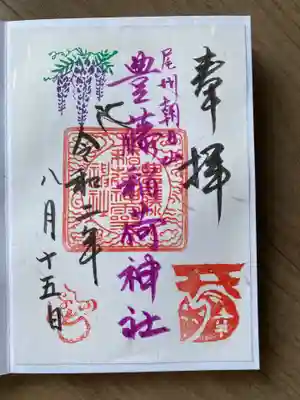 奉拝
尾州朝日山
豊藤稲荷神社
令和二年
八月十五日